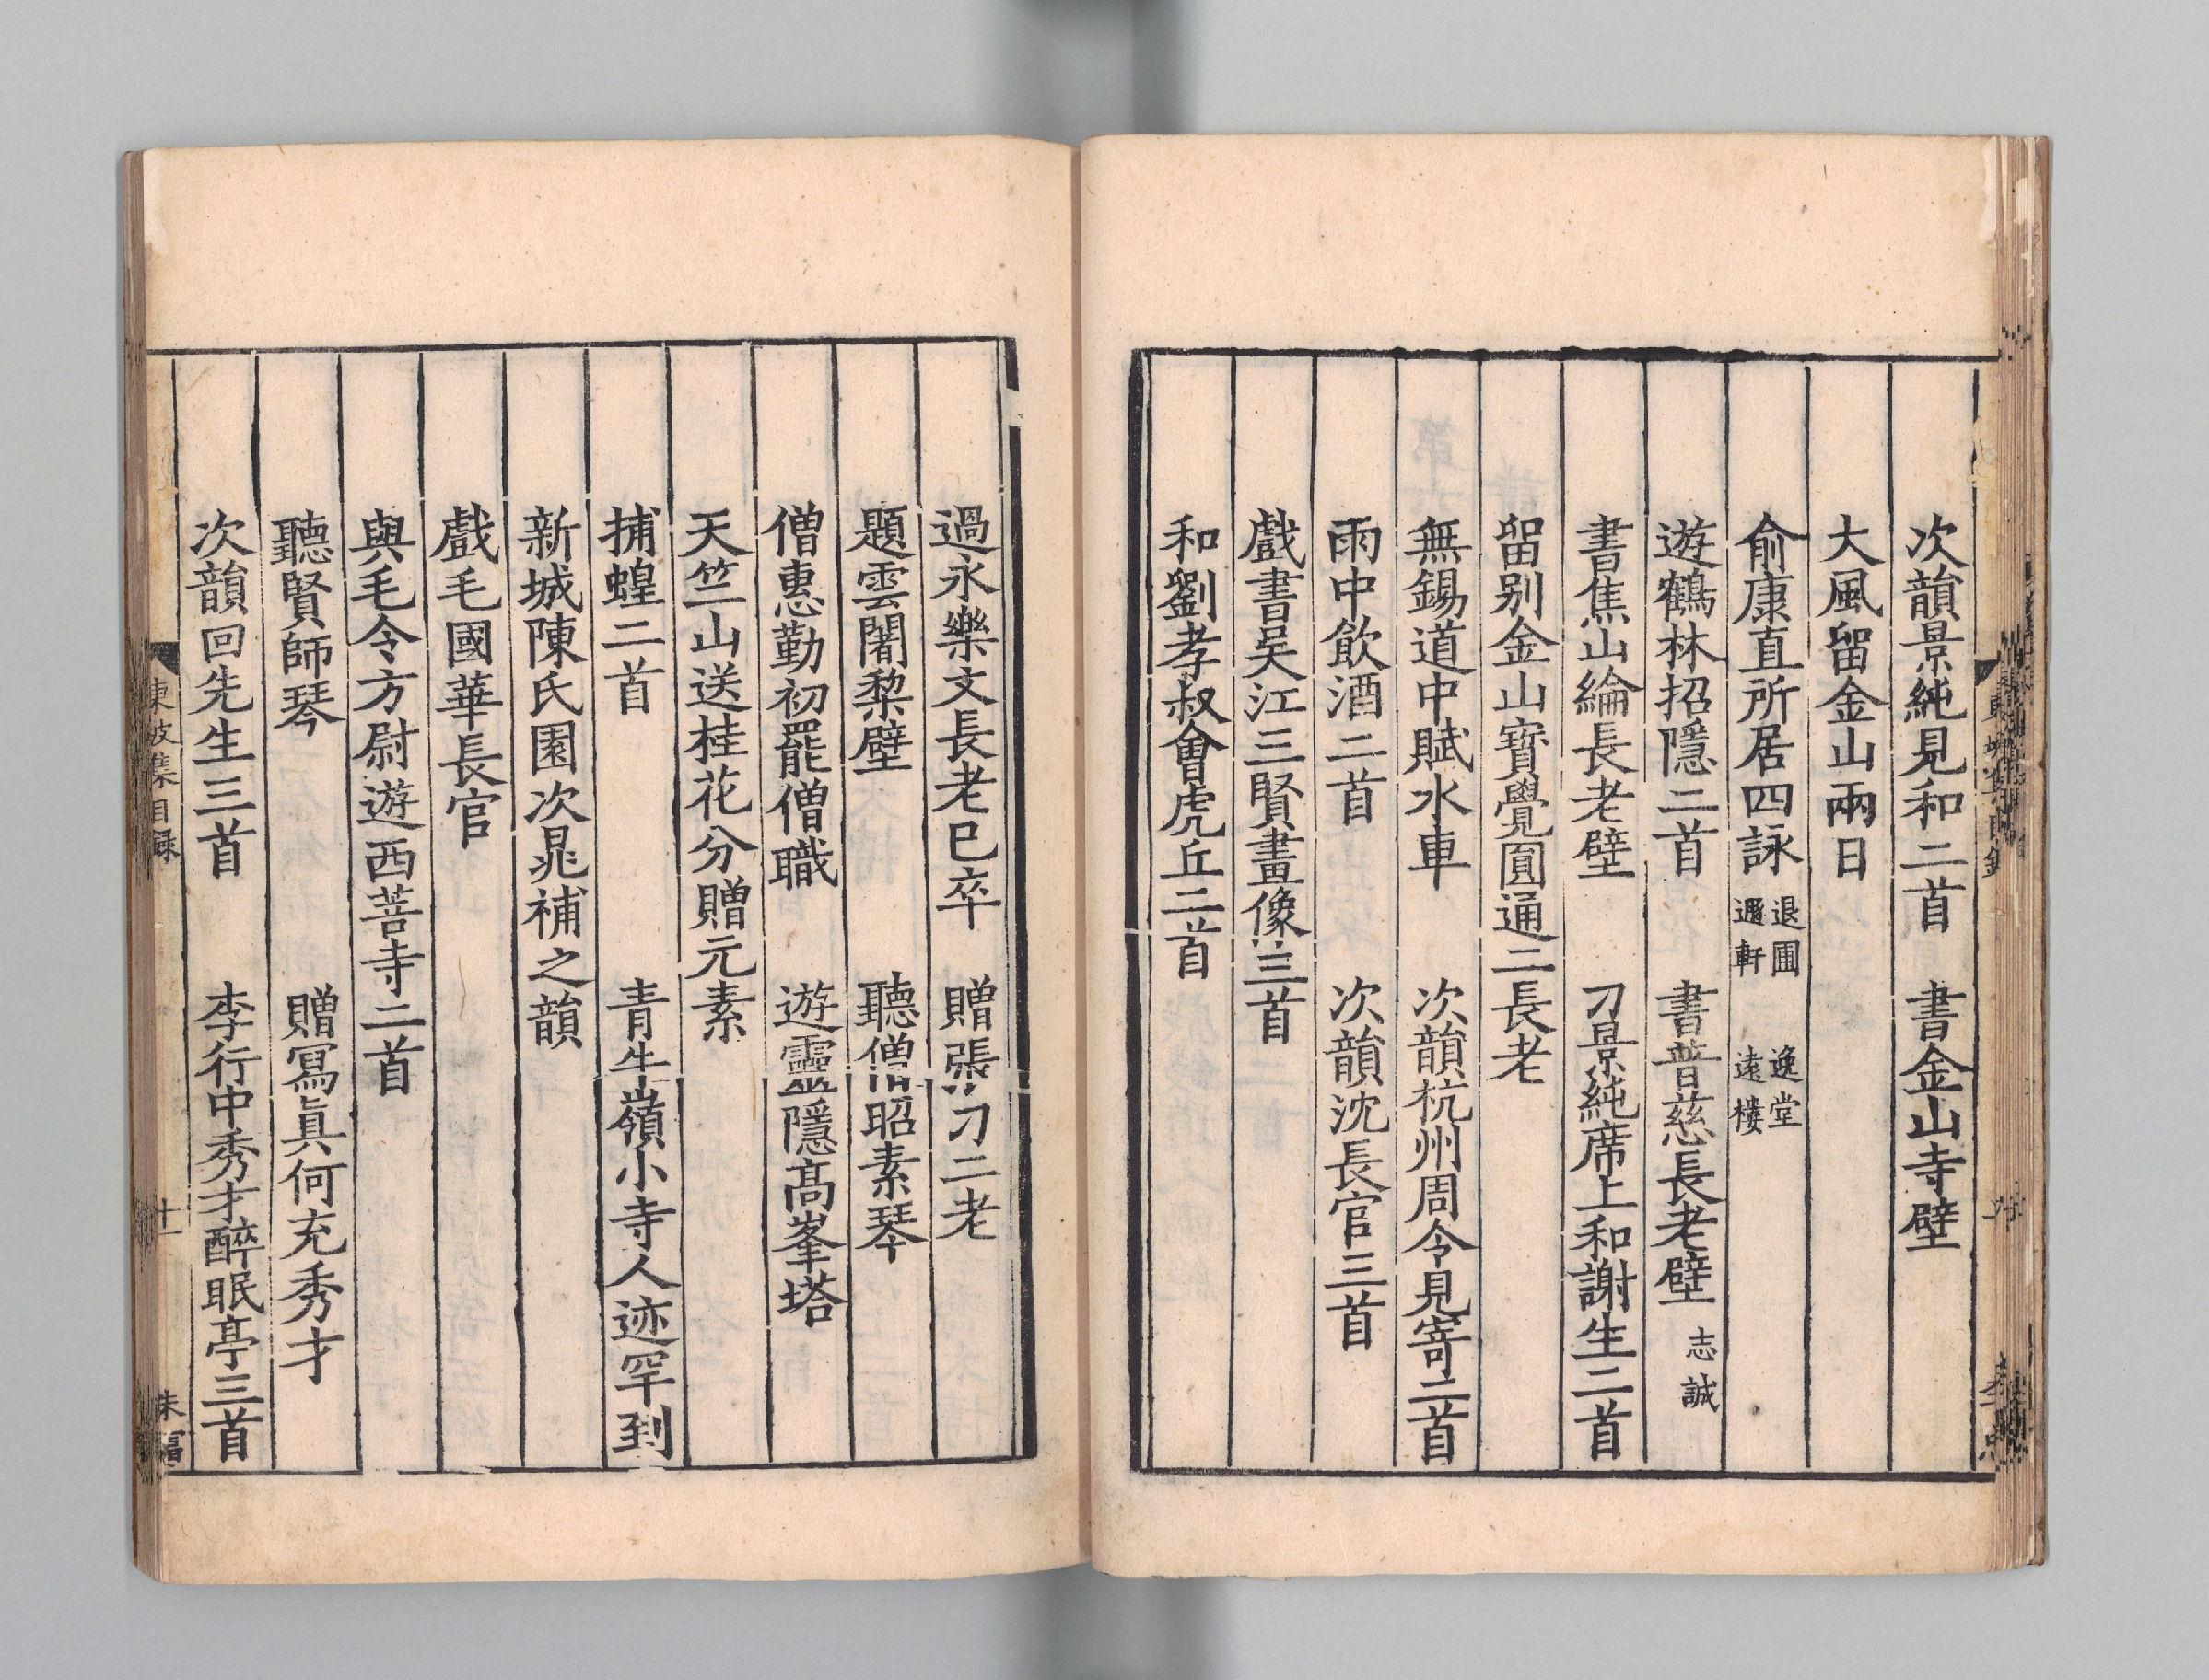 次韻景純見和二首　書金山寺壁
大風留金山兩日
俞康直所居四詠　退圃　逸堂　遯軒　遠樓
遊鶴林招隱二首　書普慈長老壁　志誠
書焦山綸長老壁　刁景純席上和謝生二首
留别金山寶覺圓通二長老
無錫道中賦水車　次韻杭州周令見寄二首
雨中飲酒二首　次韻沈長官三首
戲書吴江三賢畫像三首
和劉孝叔會虎丘二首
過永樂文長老巳卒　贈張刁二老
題雲闍黎壁　聽僧昭素琴
僧惠勤初罷僧職　遊靈隱高峯塔
天竺山送桂花分贈元素
捕蝗二首　青牛嶺小寺人迹罕到
新城陳氏園次晁補之韻
戲毛國華長官
與毛令方尉遊西菩寺二首
聽賢師琴　贈寫眞何充秀才
次韻回先生三首　李行中秀才醉眠亭三首
東坡集目録　十一　朱富